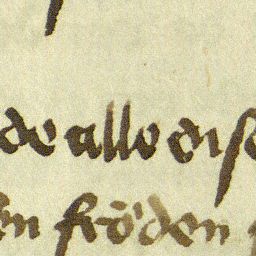 de allo dise
en frōden